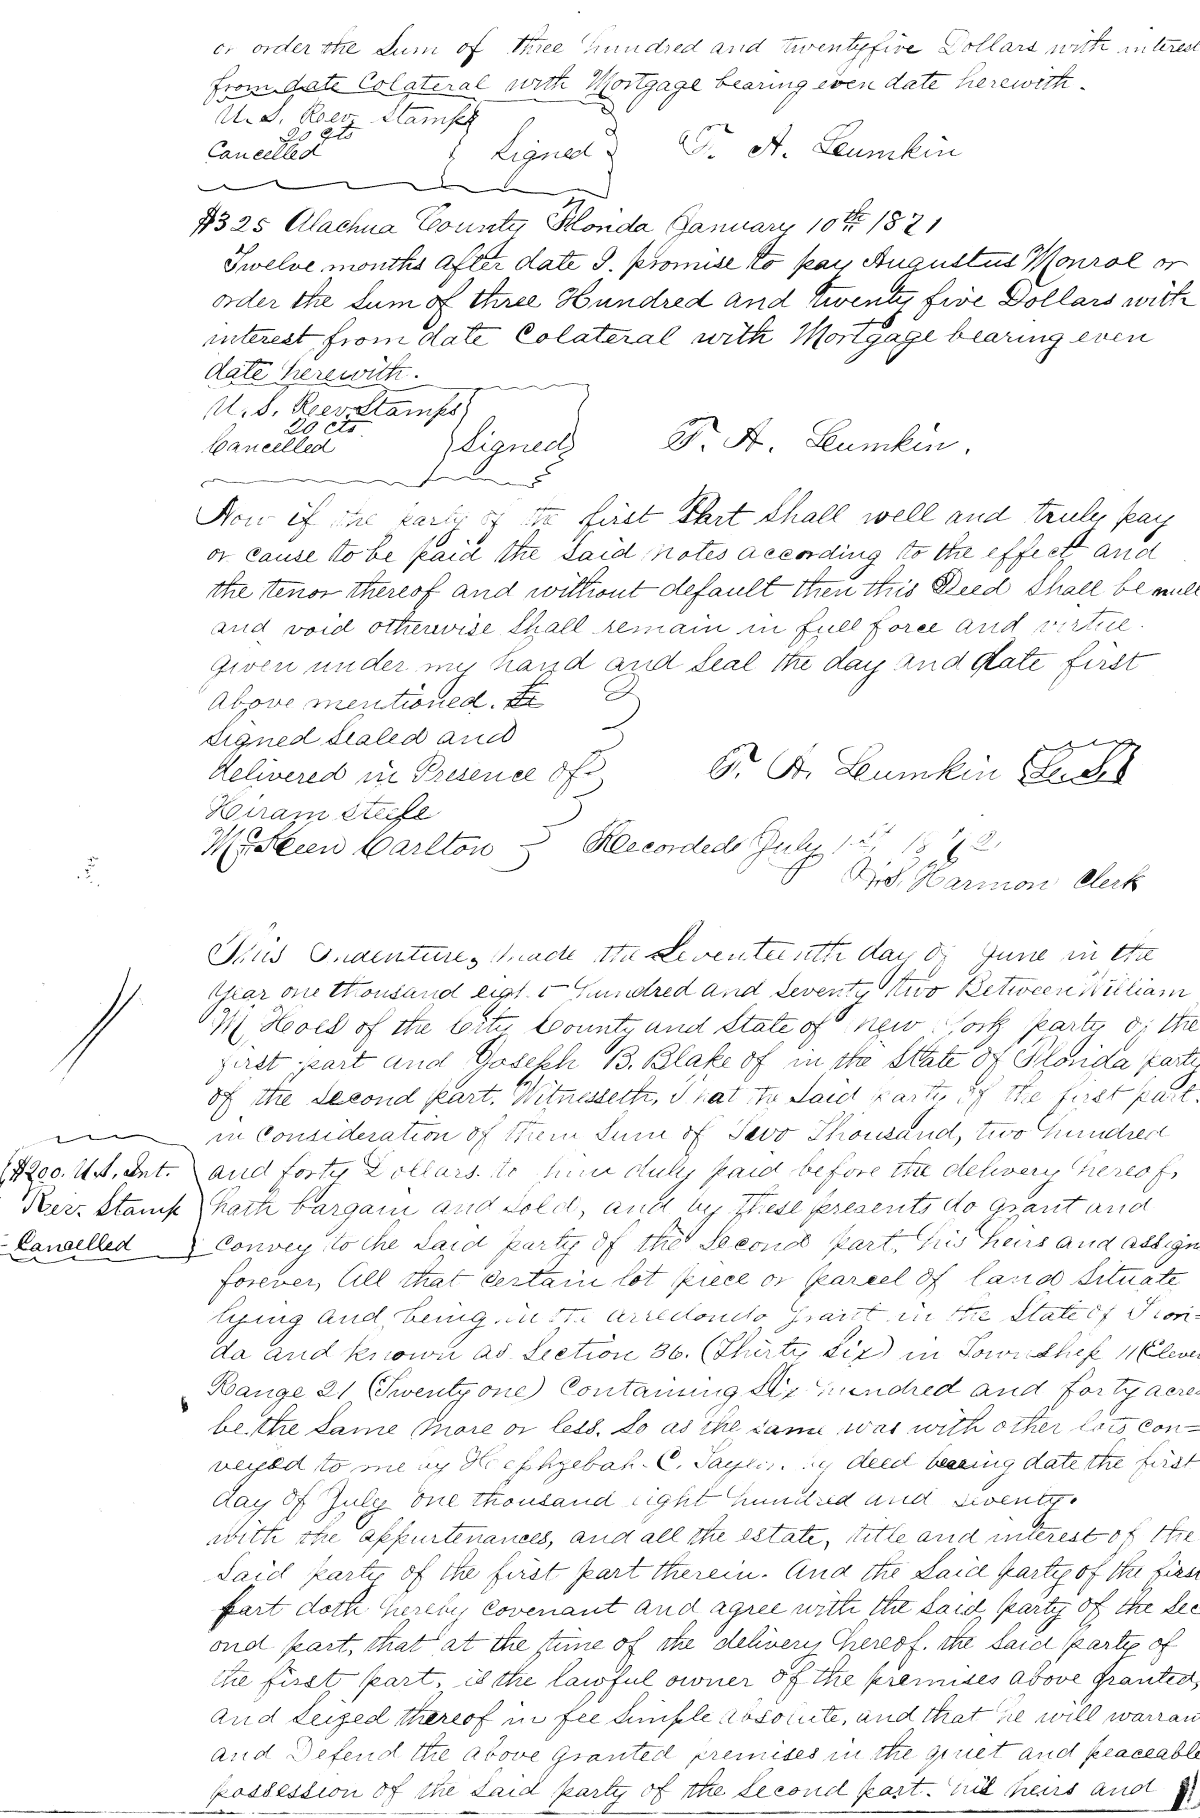 or order the Sum of three hundred and twentyfive Dollars with interest
from date Colateral with Mortgage bearing even date herewith.
U. S. Reev. Stamps
20 cts
Cancelled
Signed
T. A. Leumkin
$325 Alachua County Florida January 10th 1871
Twelve months after date I. promise to pay Augustus Monroe or
order the Sum of three Hundred and twenty five Dollars with
interest from date Colateral with Mortgage bearing even
date herewith.
U. S. Reev. Stamps
20 cts
Cancelled
Signed
T. A. Leumkin.
Now if the party of the first Part Shall well and truly pay
or cause to be paid the Said notes according to the effect and
the tenor thereof and without default then this Deed Shall be null
and void otherwise Shall remain in full force and virtue.
given under my hand and Seal the day and date first
above mentioned.
Signed Sealed and
delivered in Presence of
T. A. Leumkin
Hiram Steele
Carlton
Recorded July 1st 1872.
Harmon Clerk
This Indenture, Made the Seventeenth day of June in the
year one thousand eight hundred and Seventy two Between William
M. Hoes of the City County and State of New York party of the
first part and Joseph B. Blake of in the State of Florida party
of the Second part. Witnesseth, That the Said party of the first part.
in Consideration of them Sum of Two Thousand, two hundred
and forty Dollars. to him duly paid before the delivery hereof,
$2.00. U.S. Int.
Rev. Stamp
Cancelled
hath bargain and Sold, and by these presents do grant and
convey to the Said party of the Second part, his heirs and assigns
forever, All that certain lot piece or parcel of land Situate
lying and being in the arredondo Grant in the State of Flori=
da and known as Section 36. (Thirty Six) in Township 11 (Eleven
Range 21 (Twenty one) Containing Six hundred and forty acres
be the Same more or less. So as the same was with other lots con=
veyed to me by C. by deed bearing date the first
day of July one thousand eight hundred and seventy.
with the appurtenances, and all the estate, title and interest of the
Said party of the first part therein. And the Said party of the first
part doth hereby covenant and agree with the Said party of the Sec
ond part, that at the time of the delivery hereof. the Said party of
the first part, is the lawful owner of the premises above granted,
and Seized thereof in fee Simple absolute, and that he will warran
and Defend the above granted premises in the quiet and peaceable
possession of the Said party of the Second part. his heirs and